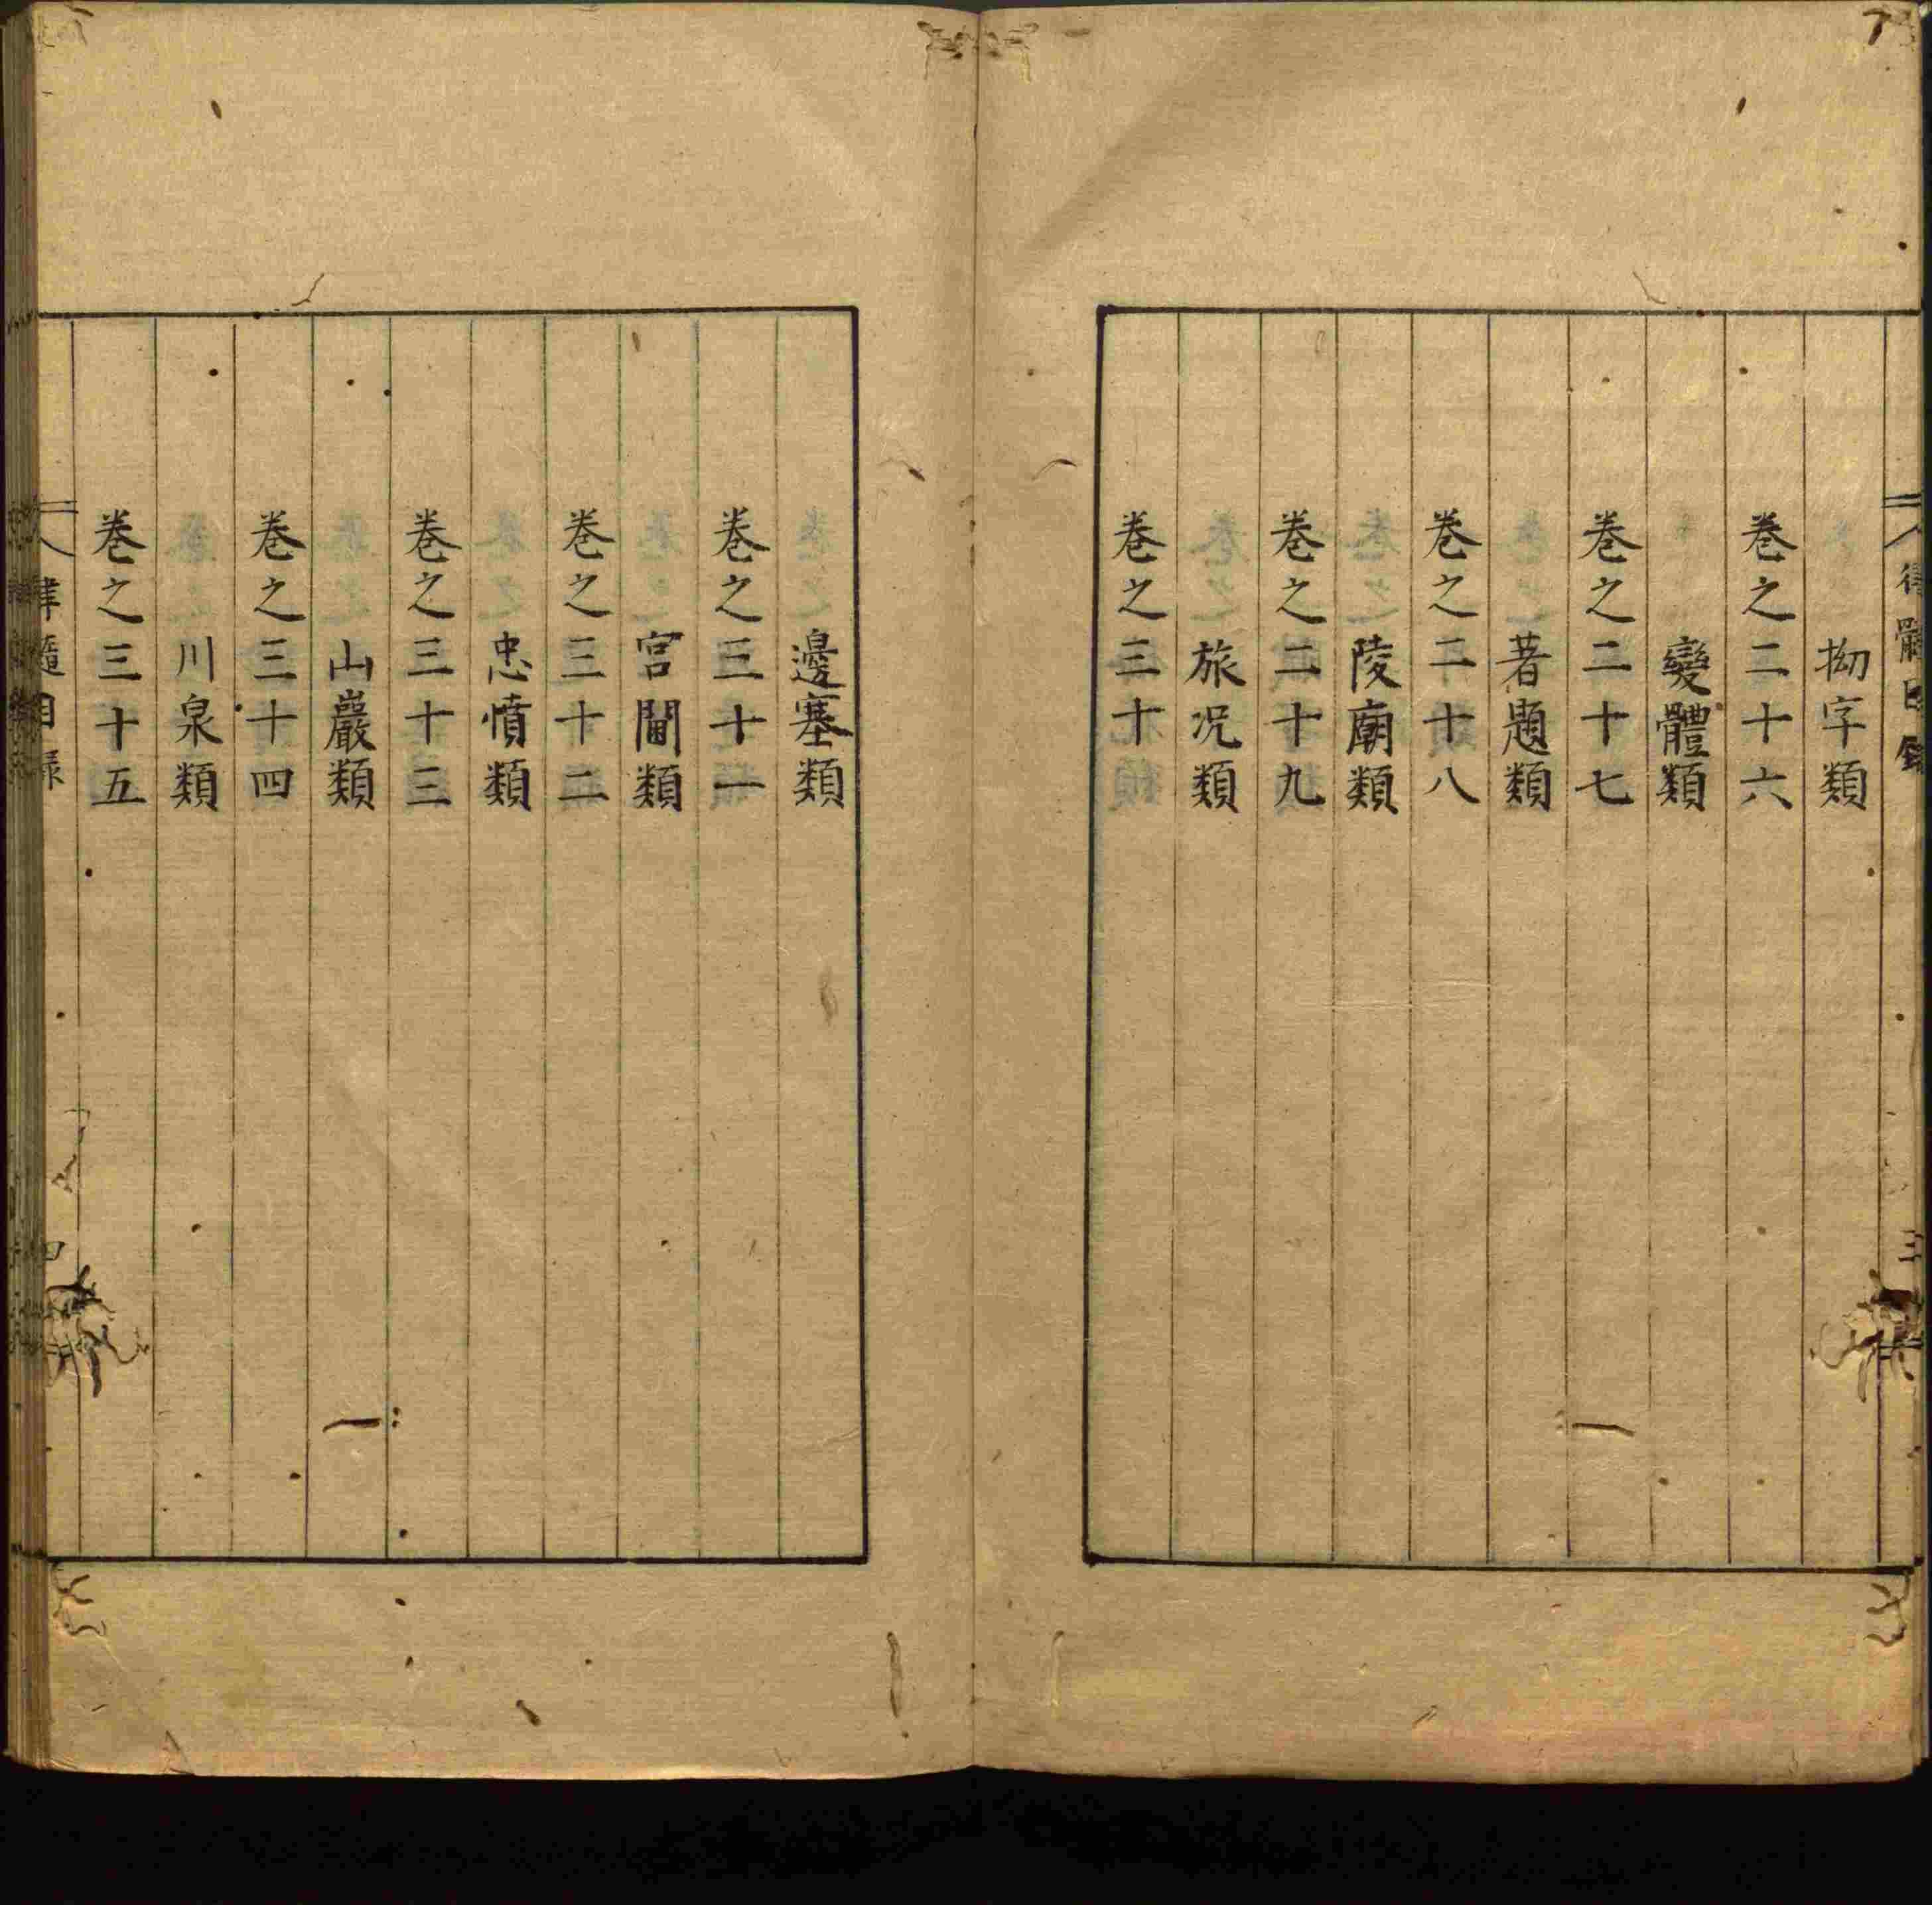 律髓目錄
三
拗字類
卷之二十六
變體類
卷之二十七
著題類
卷之二十八
陵廟類
卷之二十九
旅况類
卷之三十
邊塞類
卷之三十一
宮閫類
卷之三十二
忠憤類
卷之三十三
山巖類
卷之三十四
川泉類
卷之三十五
律髓目錄
四